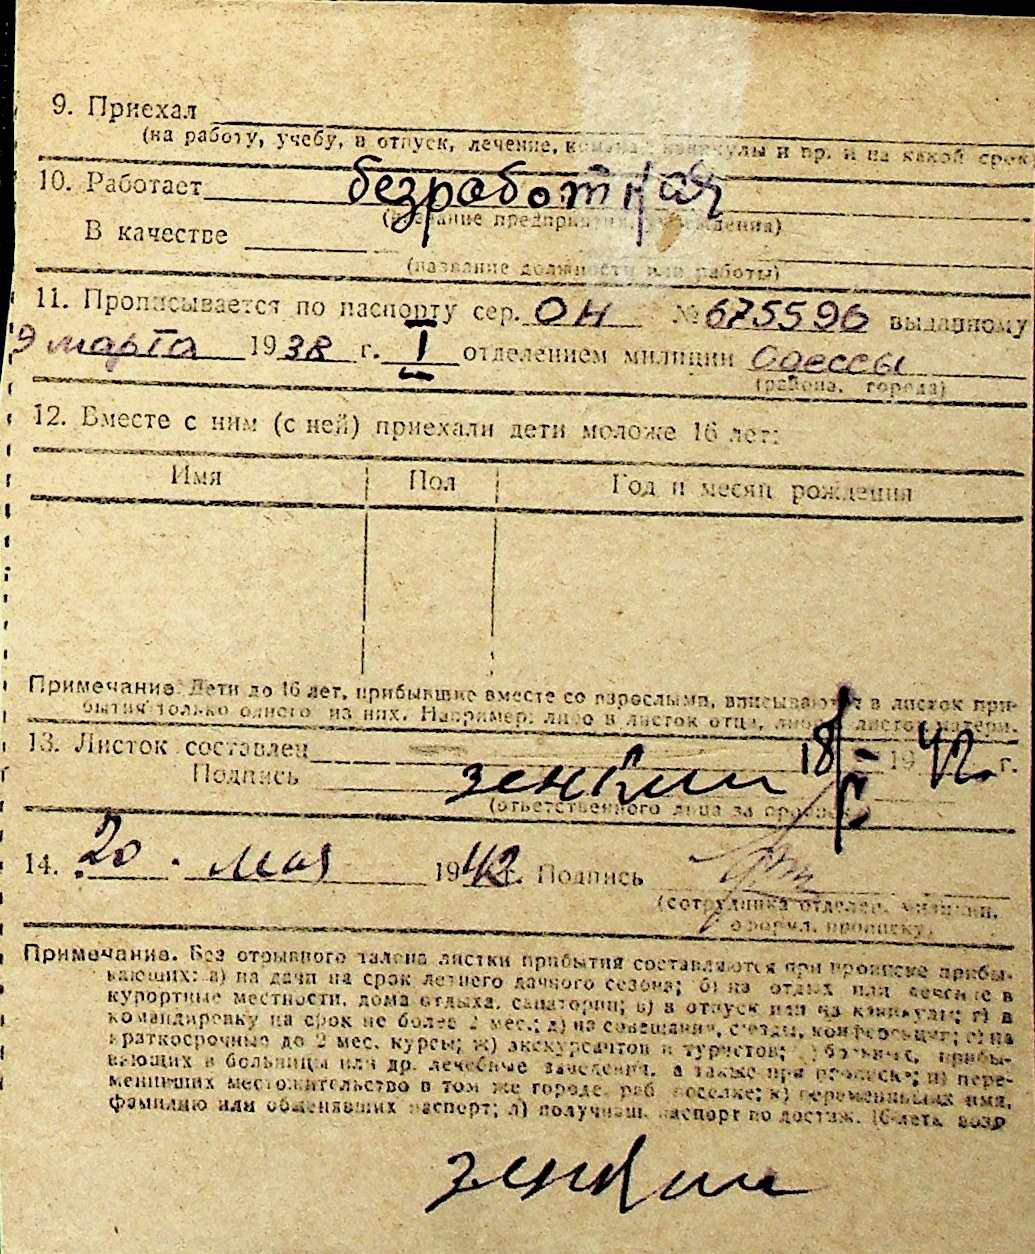 9. Приехал
(на работу, учебу, в отпуск, лечение, команд. каникулы и пр. и на какой срок
10. Работает безработная
(название предприятия, учреждения)
В качестве
(название должности или работы)
11. Прописывается по паспорту сер. ОН № 675596 выданному
9 марта 1938 г. I отделением милиции Одессы
(района, города)
12. Вместе с ним (с ней) приехали дети моложе 16 лет:
Имя Пол Год и месяц рождения
Примечание. Дети до 16 лет, прибывшие вместе со взрослыми, вписываются в листок при-
бытия только одного из них. Например: либо в листок отца, либо в листок матери.
13. Листок составлен 18/ 1942 г.
Подпись зенкин
(ответственного лица за прописку)
14. 20. мая 1942. Подпись
(сотрудника отделен. милиции,
оформл. прописку.
Примечание. Без отрывного талона листки прибытия составляются при прописке прибы-
вающих: а) на дачи на срок летнего дачного сезона; б) на отдых или лечение в
курортные местности, дома отдыха, санатории; в) в отпуск или на каникулы; г) в
командировку на срок не более 2 мес.; д) на совещания, съезды, конференции; е) на
краткосрочные до 2 мес. курсы; ж) экскурсантов и туристов; з) больных, прибы-
вающих в больницы или др. лечебные заведения, а также при прописке; и) пере-
менивших местожительство в том же городе, раб. поселке; к) переменивших имя,
фамилию или обменявших паспорт; л) получивш. паспорт по достиж. 16-лета возр
зенкин